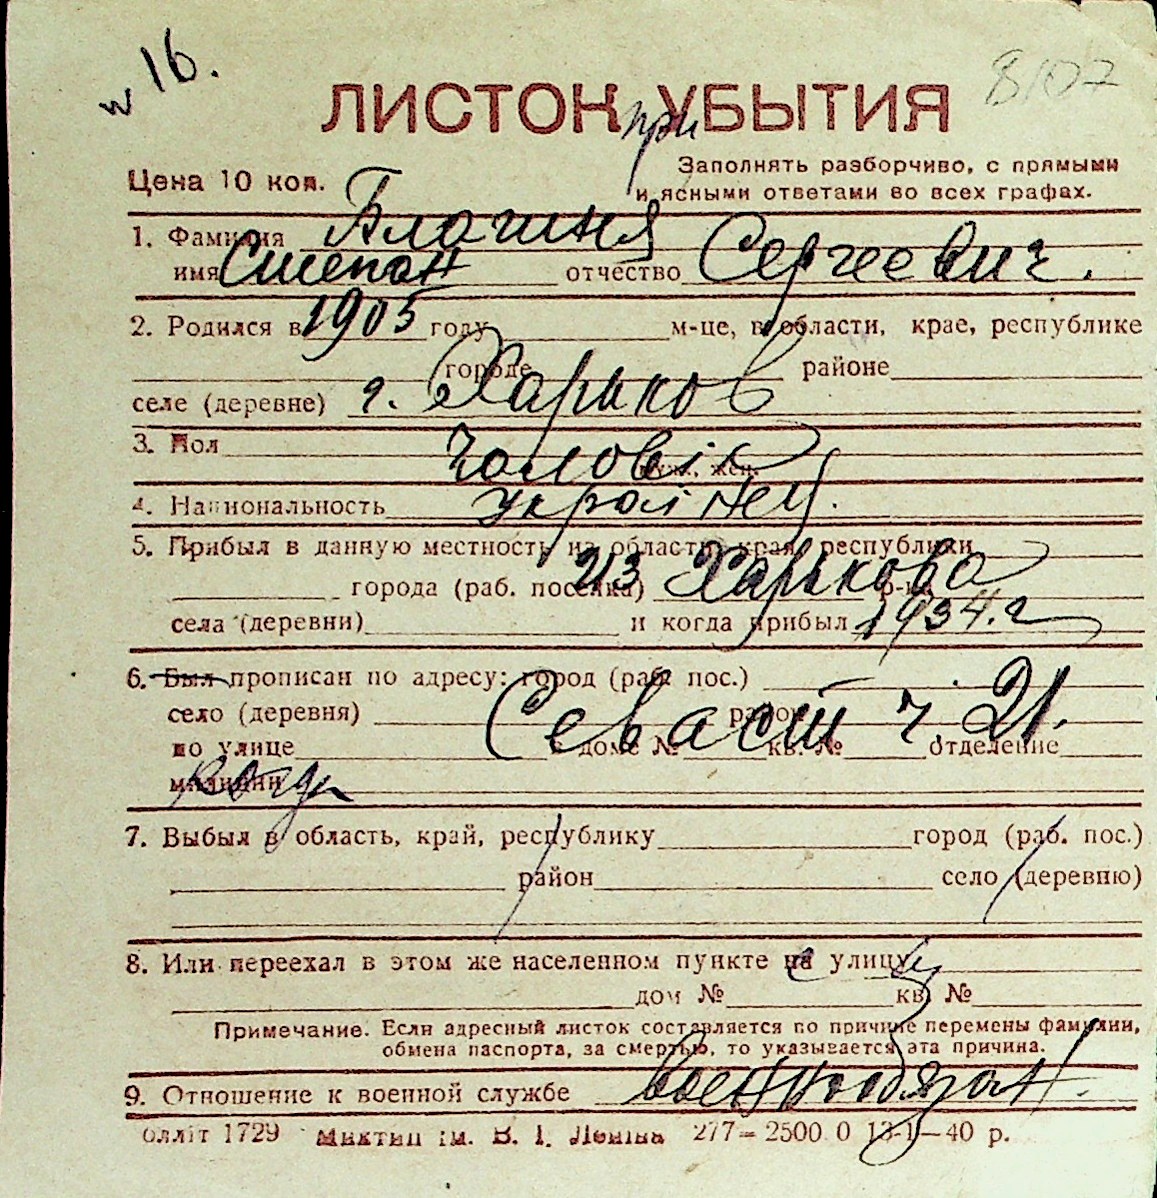 16.
8107
ЛИСТОК УБЫТИЯ
при
Заполнять разборчиво, с прямыми
и ясными ответами во всех графах.
Цена 10 коп.
1. Фамилия
имя Степан отчество Сергеевич.
2. Родился в 1905 году м-це, в области, крае, республике
городе районе
селе (деревне) г. Харьков
3. Пол Чоловік муж., жен.
4. Национальность Українец.
5. Прибыл в данную местность из области, края, республики
города (раб. поселка) из Харькова р-на
села (деревни) и когда прибыл 1934. г
6. Был прописан по адресу: город (раб. пос.)
село (деревня) район Севаст ч 21.
по улице в доме № кв. № отделение
милиции
7. Выбыл в область, край, республику город (раб. пос.)
район село (деревню)
8. Или переехал в этом же населенном пункте на улицу
дом № кв. №
Примечание. Если адресный листок составляется по причине перемены фамилии,
обмена паспорта, за смертью, то указывается эта причина.
9. Отношение к военной службе военнообязан.
олліт 1729 Миктип ім. В. І. Леніна 277—2500 0 13-1—40 р.